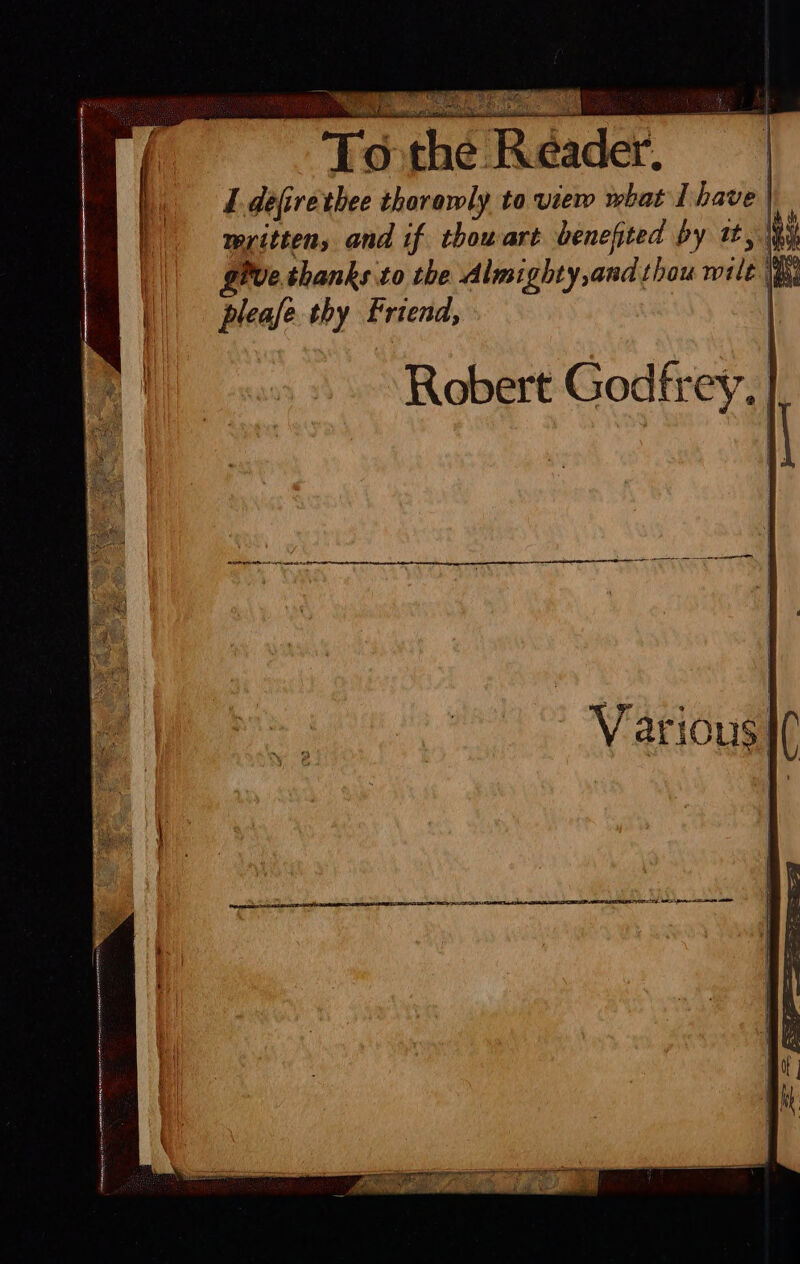 To the Reader.
I deſire thee thorowly to view what I have
written, and if thou art benefited by it,
give thanks to the Almighty, and thou wilt
pleaſe thy Friend,
Robert Godfrey.
Various
of